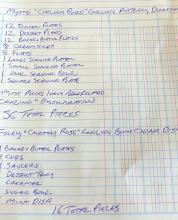 Myott "Chelsea Rose" English Pottery Dinner
12 Dinner Plates
12 Dessert Plates
12 Bread & Butter Plates
8 Cream Soups
8 Flats
1 Large Serving Platter
1 Small Serving Platter
1 Oval Serving Bowl
1 Square Serving Plate
Most Pieces Have
Crazing & Discoloration
56 Total Pieces
Foley "Chatham Rose" English Bone China Dish
Bread & Butter Plates
Cups
Saucers
Dessert Tray
Creamer
Sugar Bowl
Mint Dish
16 Total Pieces